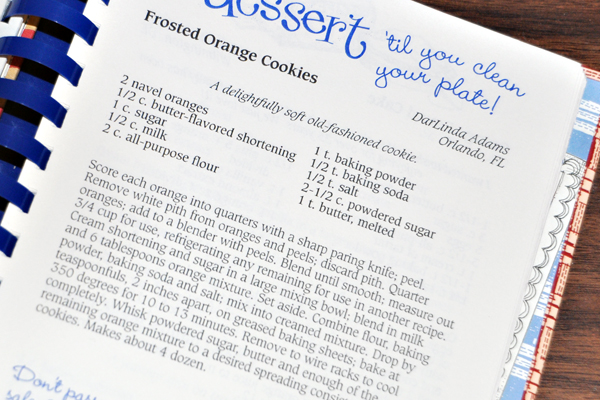 dessert 'til you clean
your plate!
Frosted Orange Cookies
DarLinda Adams
Orlando, FL
A delightfully soft old-fashioned cookie.
2 navel oranges
1/2 c. butter-flavored shortening
1 c. sugar
1/2 c. milk
2 c. all-purpose flour
1 t. baking powder
1/2 t. baking soda
1/2 t. salt
2-1/2 c. powdered sugar
1 t. butter, melted
Score each orange into quarters with a sharp paring knife; peel.
Remove white pith from oranges and peels; discard pith. Quarter
oranges; add to a blender with peels. Blend until smooth; measure out
3/4 cup for use, refrigerating any remaining for use in another recipe.
Cream shortening and sugar in a large mixing bowl; blend in milk
and 6 tablespoons orange mixture. Set aside. Combine flour, baking
powder, baking soda and salt; mix into creamed mixture. Drop by
teaspoonfuls, 2 inches apart, on greased baking sheets; bake at
350 degrees for 10 to 13 minutes. Remove to wire racks to cool
completely. Whisk powdered sugar, butter and enough of the
remaining orange mixture to a desired spreading
cookies. Makes about 4 dozen.
Don't